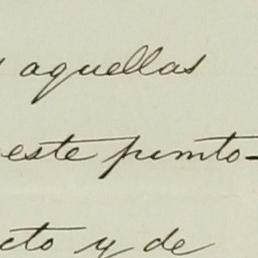 aquellas
este punto-
cto y de